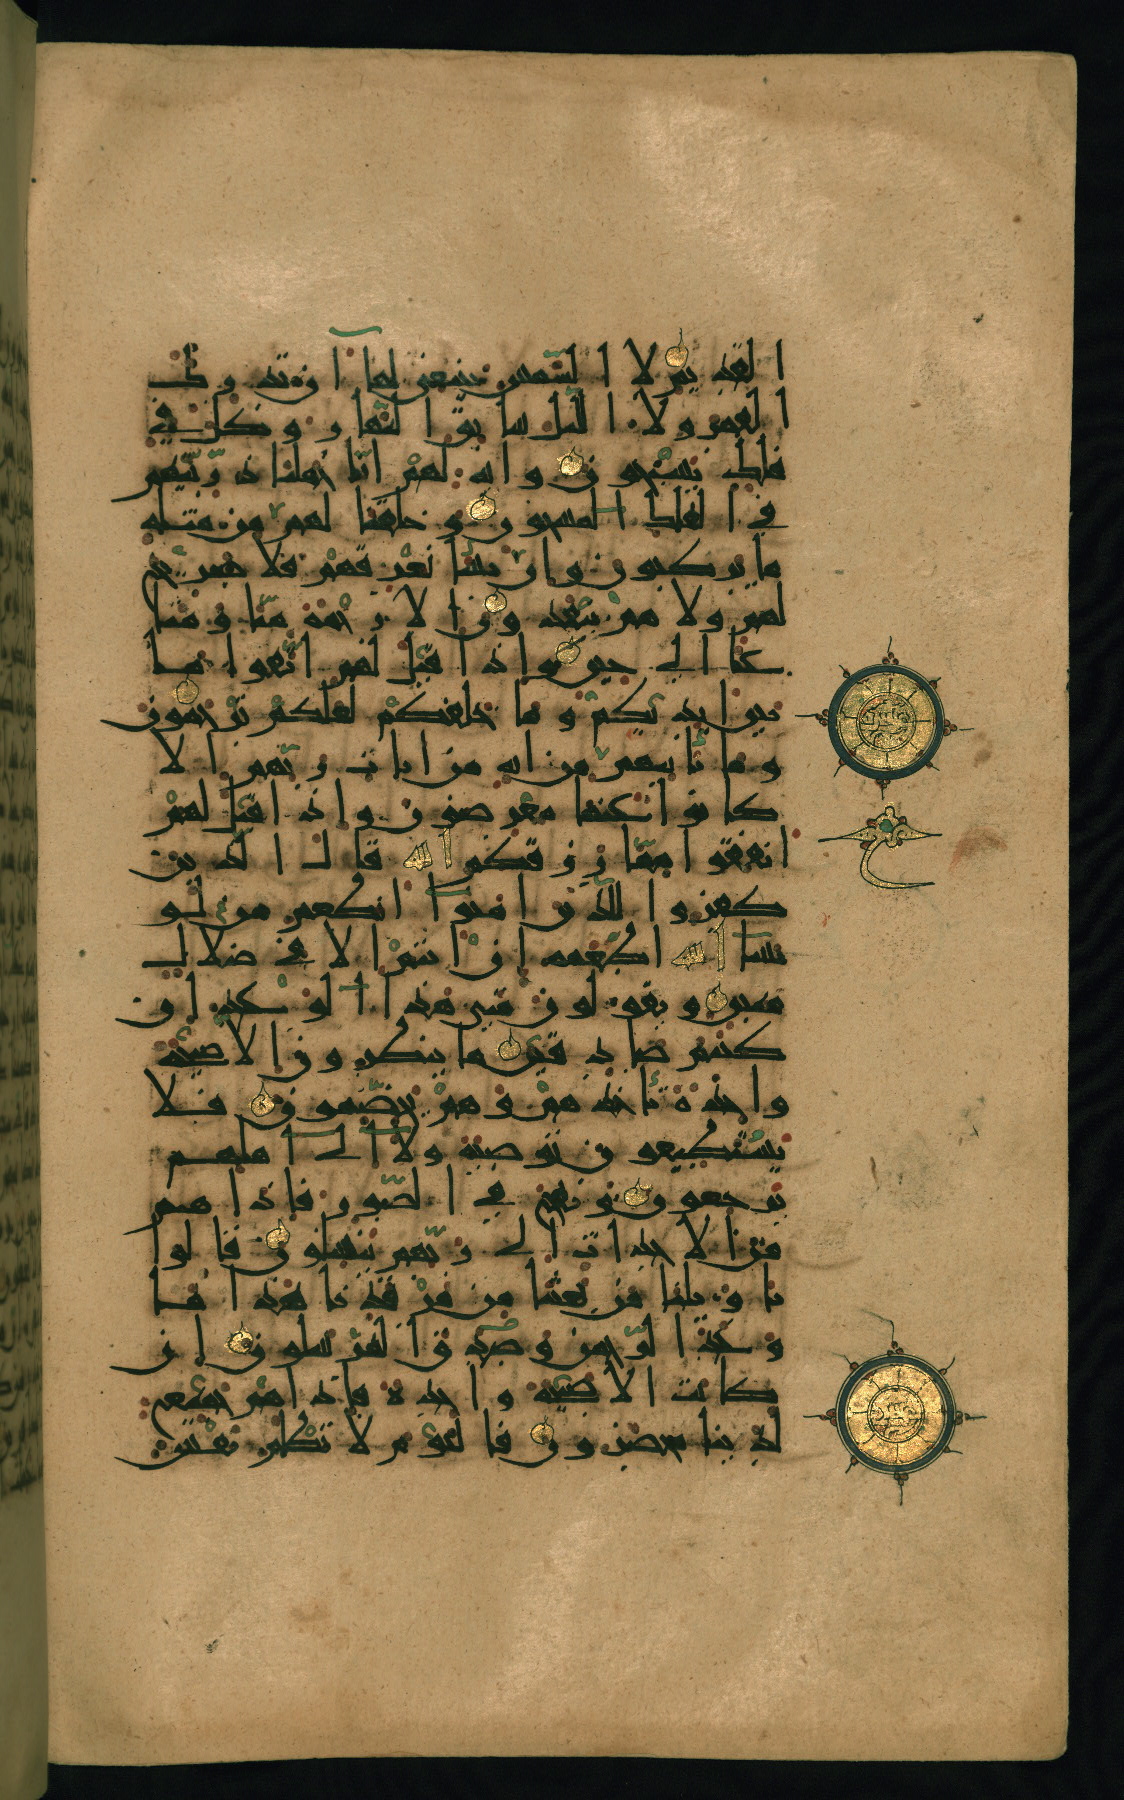 القديم لا الشمس ينبغي لها ان تدرك
القمر ولا الليل سابق النهار وكل في
فلك يسبحون واية لهم انا حملنا ذريتهم
في الفلك المشحون وخلقنا لهم من مثله
ما يركبون وان نشا نغرقهم فلا صريخ
لهم ولا هم ينقذون الا رحمة منا ومتا
عا الى حين واذا قيل لهم اتقوا ما
بين ايديكم وما خلفكم لعلكم ترحمون
وما تاتيهم من اية من ايات ربهم الا
كانوا عنها معرضين واذا قيل لهم
انفقوا مما رزقكم الله قال الذين
كفروا للذين امنوا انطعم من لو
يشا الله اطعمه ان انتم الا في ضلال
مبين ويقولون متى هذا الوعد ان
كنتم صادقين ما ينظرون الا صيحة
واحدة تاخذهم وهم يخصمون فلا
يستطيعون توصية ولا الى اهلهم
يرجعون ونفخ في الصور فاذا هم
من الاجداث الى ربهم ينسلون قالوا
يا ويلنا من بعثنا من مرقدنا هذا ما
وعد الرحمن وصدق المرسلون ان
كانت الا صيحة واحدة فاذا هم جميع
لدينا محضرون فاليوم لا تظلم نفس